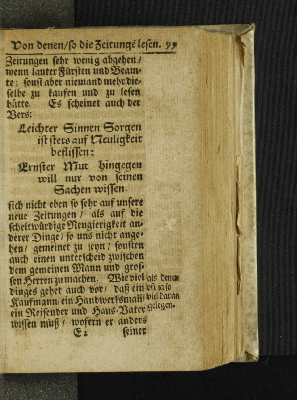 Von denen/ so die Zeitungē lesen. 99
Zeitungen sehr wenig abgehen/
wenn lauter Fürsten und Beam-
te; sonst aber niemand mehr die-
selbe zu kaufen und zu lesen
hätte. Es scheinet auch der
Vers:
Leichter Sinnen Sorgen
ist stets auf Neuligkeit
beflissen:
Ernster Mut hingegen
will nur von seinen
Sachen wissen.
sich nicht eben so sehr auf unsere
neue Zeitungen / als auf die
scheltwürdige Neugierigkeit an-
derer Dinge/ so uns nicht ange-
hen/ gemeinet zu seyn? sonsten
auch einen unterscheid zwischen
dem gemeinen Mann und gros-
sen Herren zu machen. Wie viel
dinges gehet auch vor/ daß ein
Kaufmann/ ein Handwerksmañ
ein Reisender und Haus-Vater
wissen muß/ wofern er anders
E 2 seiner
als denen
viel daran
gelegen.